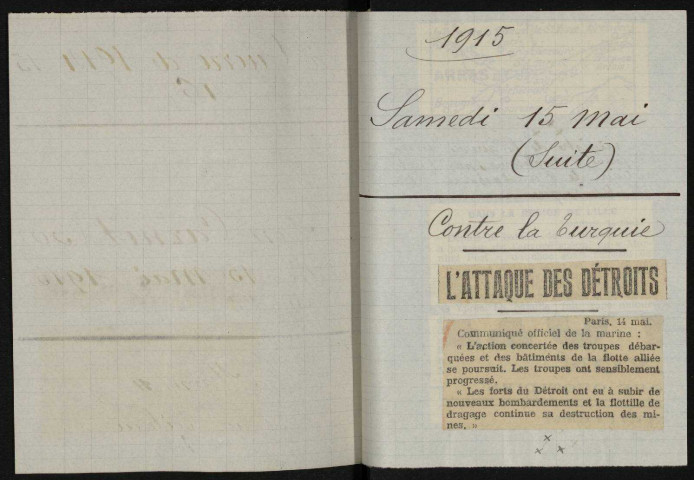 1915
Samedi 15 Mai
(Suite)
Contre la Turquie
L'ATTAQUE DES DÉTROITS
Paris, 14 mai.
Communiqué officiel de la marine :
« L'action concertée des troupes débar-
quées et des bâtiments de la flotte alliée
se poursuit. Les troupes ont sensiblement
progressé.
« Les forts du Détroit ont eu à subir de
nouveaux bombardements et la flottille de
dragage continue sa destruction des mi-
nes. »